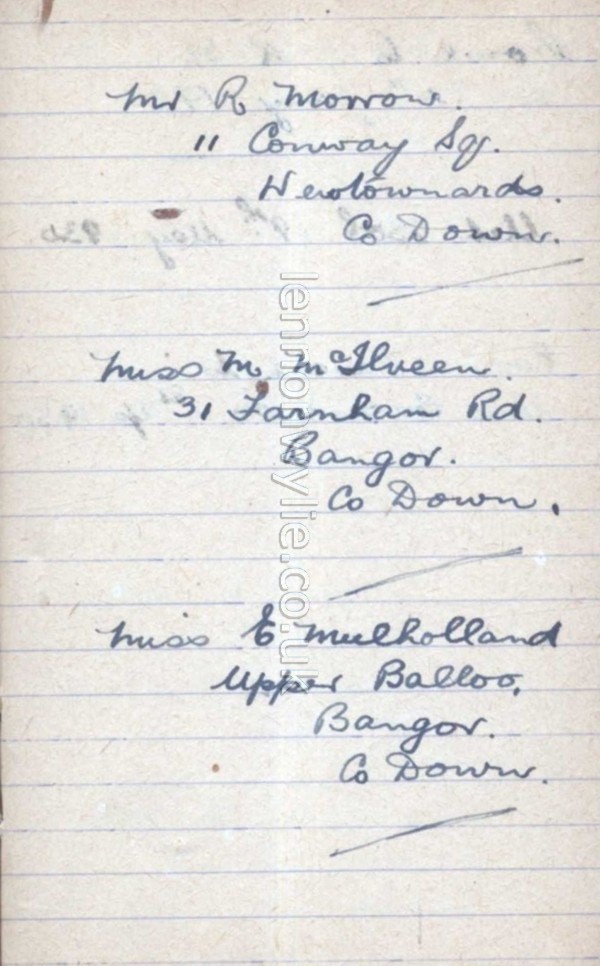 Mr R Morrow.
11 Conway Sq.
Newtownards.
Co Down.
Miss M McIlveen.
31 Farnham Rd.
Bangor.
Co Down.
Miss E Mulholland
Upper Balloo,
Bangor.
Co Down.
lennonwylie.co.uk